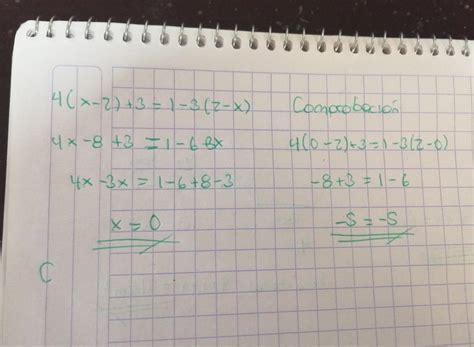 4(x-2)+3=1-3(2-x)
4x-8+3=1-6 3x
4x-3x=1-6+8-3
x=0
C
Comprobación
4(0-2)+3=1-3(2-0)
-8+3=1-6
-5=-5